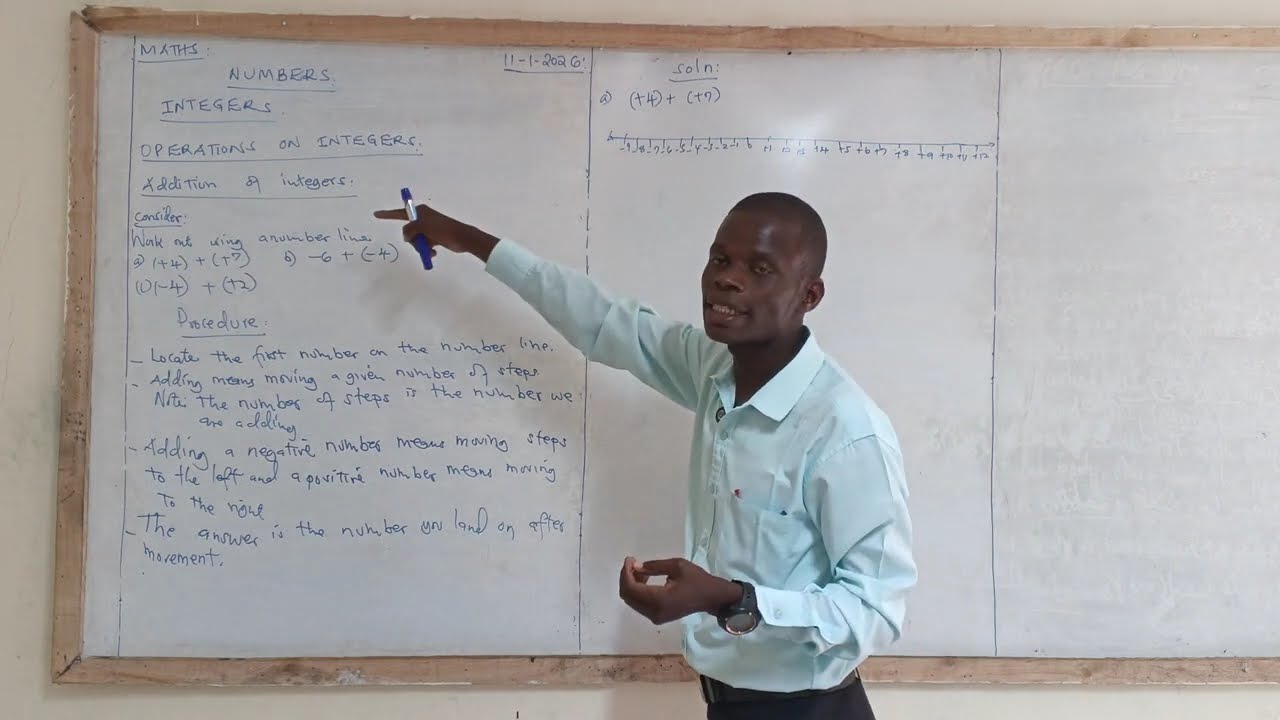 MATHS:
11-1-2026:
NUMBERS.
INTEGERS.
OPERATIONS ON INTEGERS.
Addition of integers:
Consider:
Work out using a number line
a) (+4) + (+7) b) -6 + (-4)
(c) (-4) + (+2)
Procedure:
- Locate the first number on the number line.
- Adding means moving a given number of steps
Note: The number of steps is the number we
are adding
- Adding a negative number means moving steps
to the left and a positive number means moving
To the right
- The answer is the number you land on after
movement.
soln:
a) (+4) + (+7)
-9 -8 -7 -6 -5 -4 -3 -2 -1 0 +1 +2 +3 +4 +5 +6 +7 +8 +9 +10 +11 +12